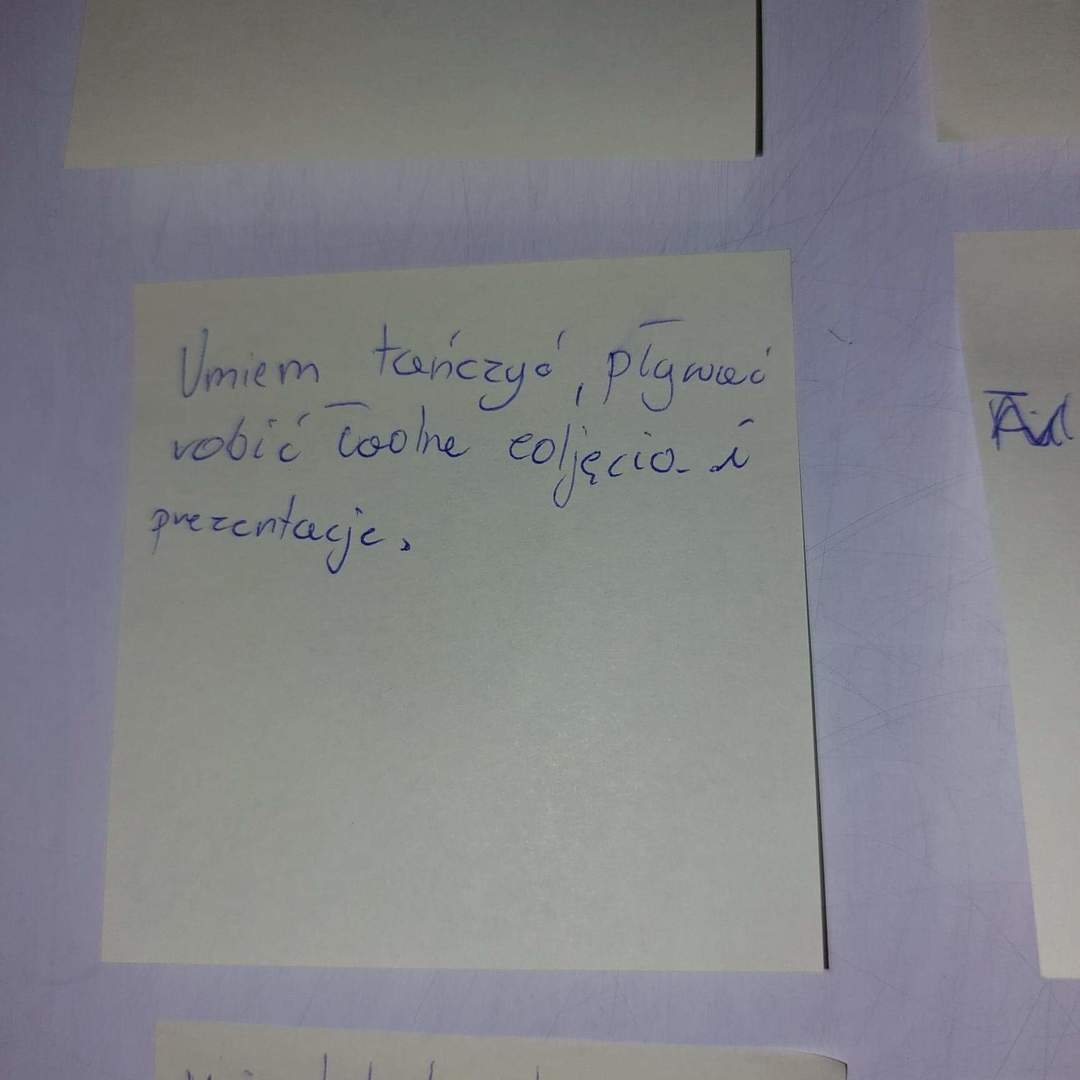 Umiem tańczyć, pływać
robić ładne zdjęcia i
prezentacje.